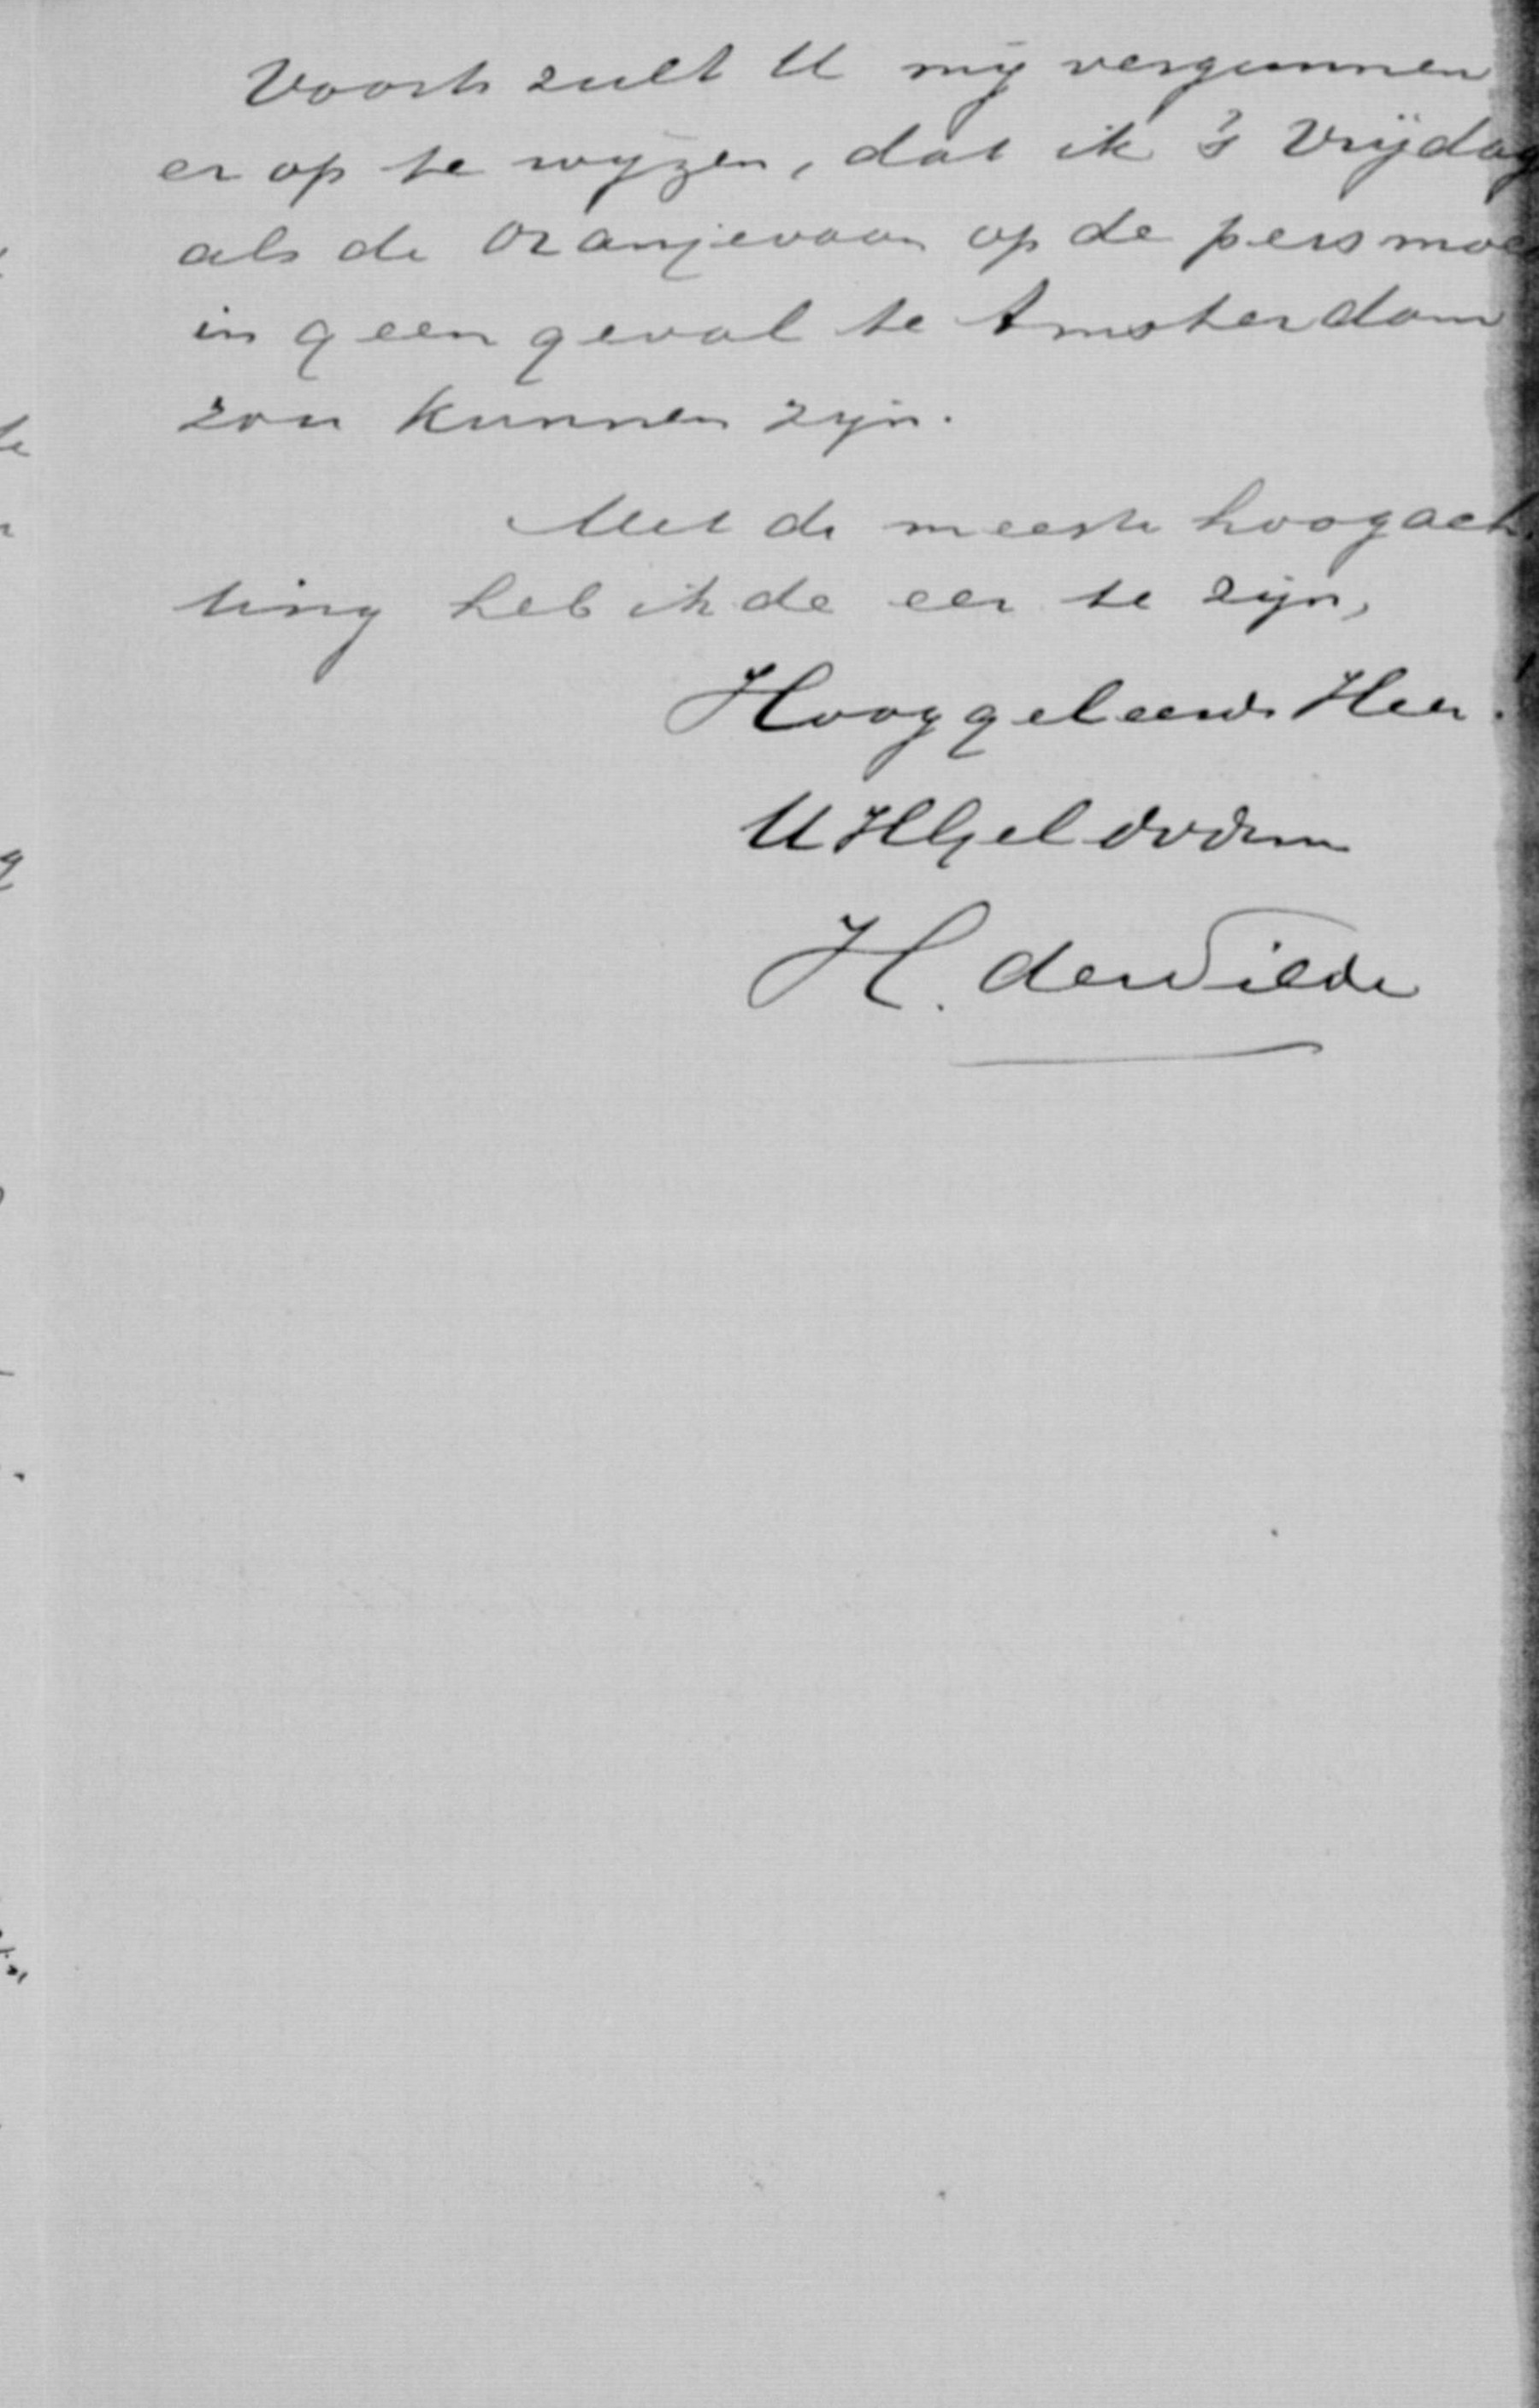 Voorts zult U mij vergunnen
er op te wijzen, dat ik 's Vrijdag
als de Oranjevaan op de pers moe
in geen geval te Amsterdam
zou kunnen zijn.
Met de meeste hoogach
ting heb ik de eer te zijn,
Hooggeleerde Heer.
U HGel dvdrn
H. de Wilde